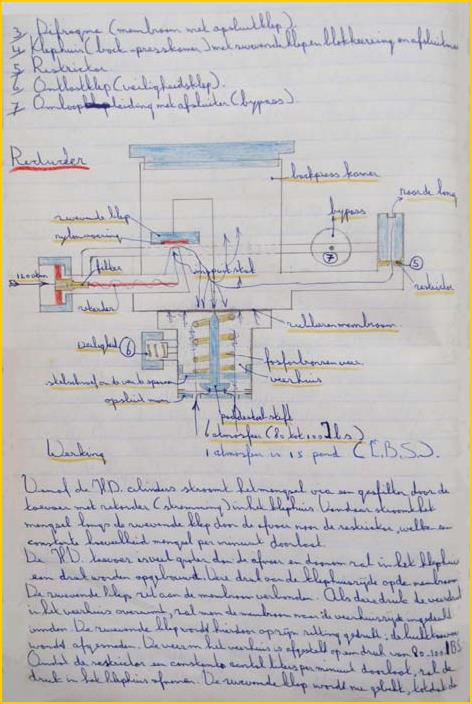 3 Difragma (membraan met afsluitklep).
4 Klephuis (back-presskamer) met zwevende klep en blokkeering en afsluiter
5 Restricter
6 Ontlastklep (veiligheidsklep).
7 Omloopleiding met afsluiter (bypass).
Reducder
backpress kamer
naar de long
zwevende klep
nylonvoering
bypass
7
120 atm
filter
5
restricter
retarder
rubberen membraam
veiligheid 6
fosforbronzen veer
veerhuis
stelschroef om de veer te spannen
opsluit moer
paddestoel stift
6 atmosfeer (80 tot 100 lbs)
Werking
1 atmosfeer is 15 pond (L.B.S.).
Vanaf de H.D. cilinders stroomt het mengsel via een gasfilter door de
toevoer met retarder (stroming) in het klephuis Vandaar stroomt het
mengsel langs de zwevende klep door de afvoer naar de restricter, welke een
constante hoeveelheid mengsel per minuut doorlaat.
De H.D. toevoer is veel groter dan de afvoer en daarom zal in het klephuis
een druk worden opgebouwd. Deze druk aan de klephuiszijde op de membraam.
De zwevende klep zit aan de membraam verbonden. Als deze druk de veerdruk
in het veerhuis overwint, zal men de membraam naar de veerhuiszijde ingedrukt
worden De zwevende klep wordt hierdoor op zijn zitting gedrukt; de luchttoevoer
wordt afgesneden. De veer in het veerhuis is afgesteld op een druk van 80-100 LBS
Omdat de restricter een constante aantal liters per minuut doorlaat, zal de
druk in het klephuis afnemen. De zwevende klep wordt nu gelicht, totdat de